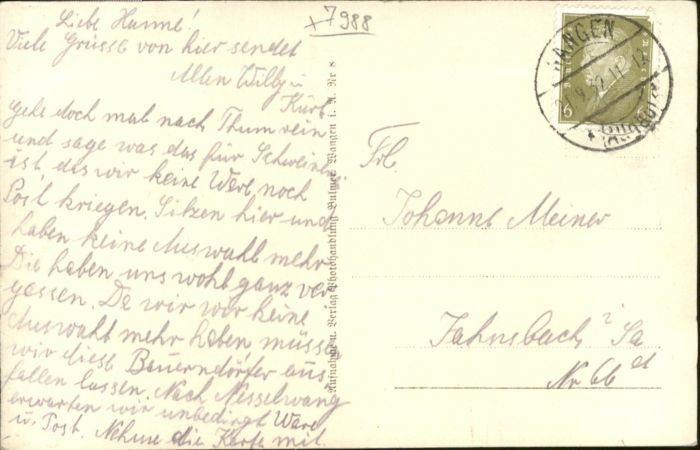 +7988
Liebe Hanne!
Viele Grüsse von hier sendet
Allen Willy u
Kurt
Geht doch mal nach Thum rein
und sage was das für Schweinerei
ist, das wir keine Ware noch
Post kriegen. Sitzen hier und
haben keine Auswahl mehr
Die haben uns wohl ganz ver
gessen. Da wir wor keine
Auswahl mehr haben müssen
wir diese Bauerndörfer aus
fallen lassen. Nach Nesselwang
erwarten wir unbedingt Ware
u. Post. Nehme die Karte mit.
Aufnahme u. Verlag Photohandlung Wangen i. A. Nr 8
WANGEN
9.32.11-12
(Allgäu)
6
Frl.
Johanne Meiner
Jahnsbach i Sa
Nr 66